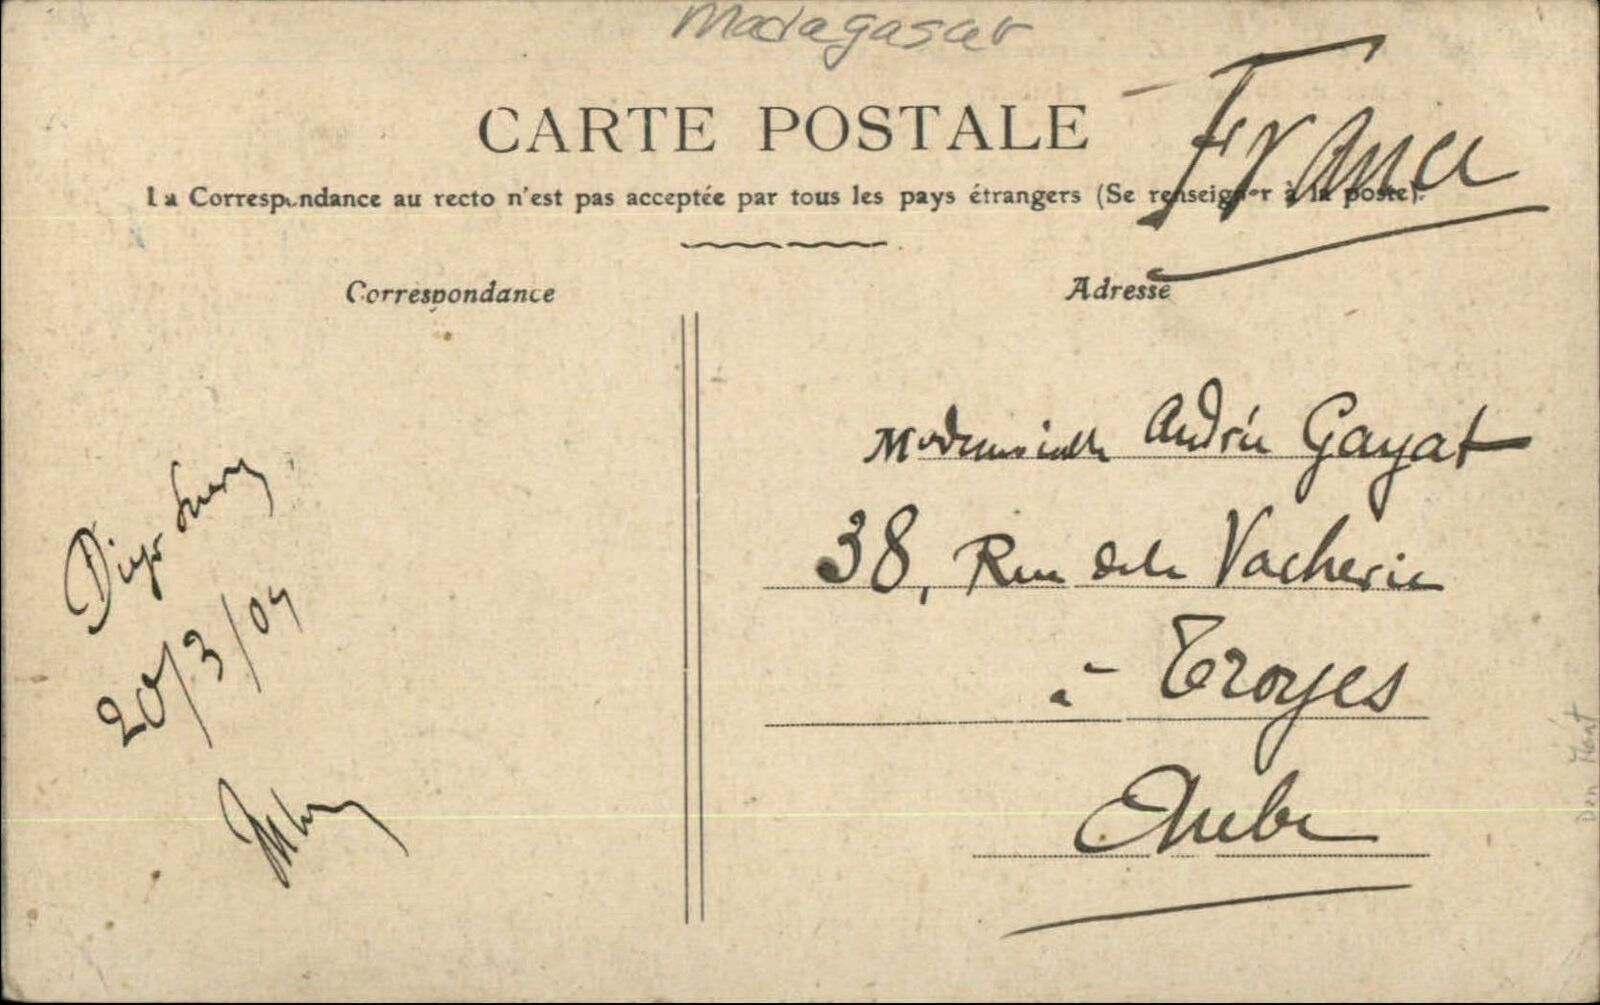 Madagascar
CARTE POSTALE
France
La Correspondance au recto n'est pas acceptée par tous les pays étrangers (Se renseigner à la poste).
Correspondance
Adresse
Diego Suarez
20/3/09
Mademoiselle Andrée Gayat
38, Rue de la Vacherie
à Troyes
Aube